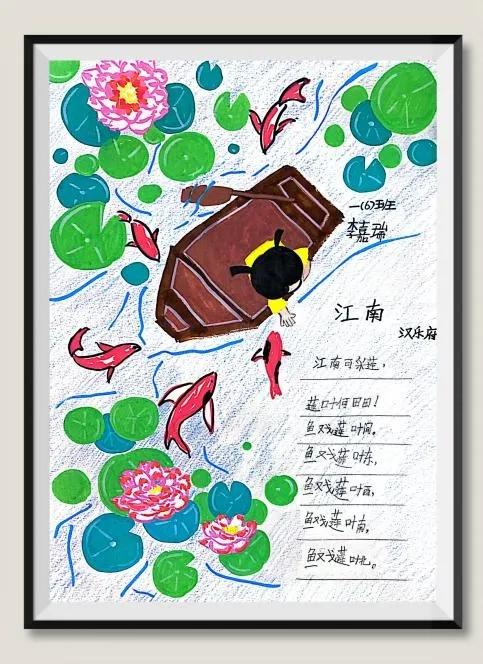 一(6)班
李嘉瑞
江南
汉乐府
江南可采莲，
莲叶何田田！
鱼戏莲叶间。
鱼戏莲叶东，
鱼戏莲叶西，
鱼戏莲叶南，
鱼戏莲叶北。